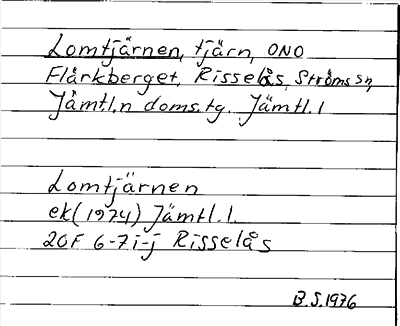 Lomtjärnen, tjärn, ONO
Flårkberget, Risselås, Ströms sn,
Jämtl.n doms.tg. Jämtl.l
Lomtjärnen
ek(1974) Jämtl.l.
20F 6-7i-j Risselås
B.S.1976